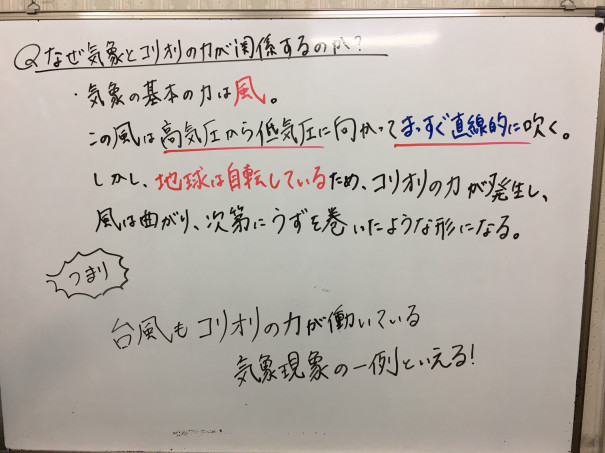 Qなぜ気象とコリオリの力が関係するのか？
・気象の基本の力は風。
この風は高気圧から低気圧に向かってまっすぐ直線的に吹く。
しかし、地球は自転しているため、コリオリの力が発生し、
風は曲がり、次第にうずを巻いたような形になる。
つまり
台風もコリオリの力が働いている
気象現象の一例といえる！